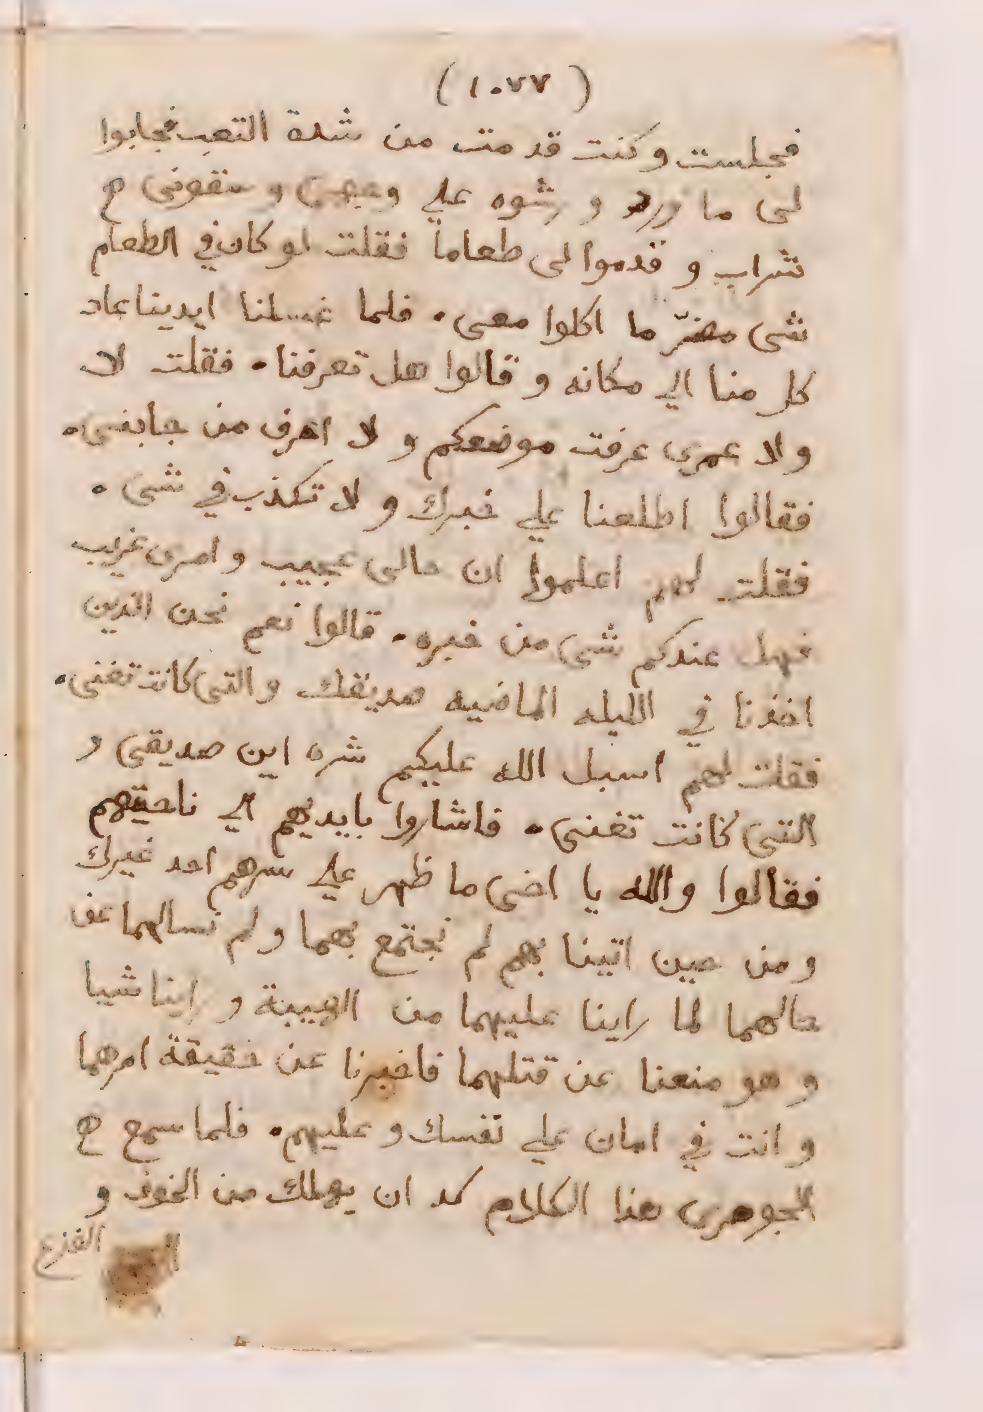 (١٠٧٧)
فجلست وكنت قد مت من شدة التعب فجابوا
لى ما ورد و رشوه علي وجهى و سقونى ح
شراب و قدموا لى طعاماً فقلت لو كان في الطعام
شى مضرّ ما اكلوا معى. فلما غسلنا ايدينا عاد
كل منا الي مكانه و قالوا هل تعرفنا. فقلت لا
ولا عمرى عرفت موضعكم و لا اعرف من جابنى.
فقالوا اطلعنا علي خبرك و لا تكذب في شى.
فقلت لهم اعلموا ان حالى عجيب و امرى غريب
فهل عندكم شى من خبره. قالوا نعم نحن الذين
اخذنا في الليله الماضيه صديقك والتى كانت تغنى.
فقلت لهم اسبل الله عليكم شره اين صديقى و
التى كانت تغنى. فاشاروا بايديهم الي ناحيتهم
فقالوا والله يا اخى ما ظهر علي سرهم احد غيرك
و من حين اتينا بهم لم نجتمع بهما و لم نسالهما عن
حالهما لما راينا عليهما من الهيبة و راينا شيا
و هو منعنا عن قتلهما فاخبرنا عن حقيقة امرهما
و انت في امان علي نفسك و عليهم. فلما سمع ح
الجوهرى هذا الكلام كد ان يهلك من الخوف و
الفزع